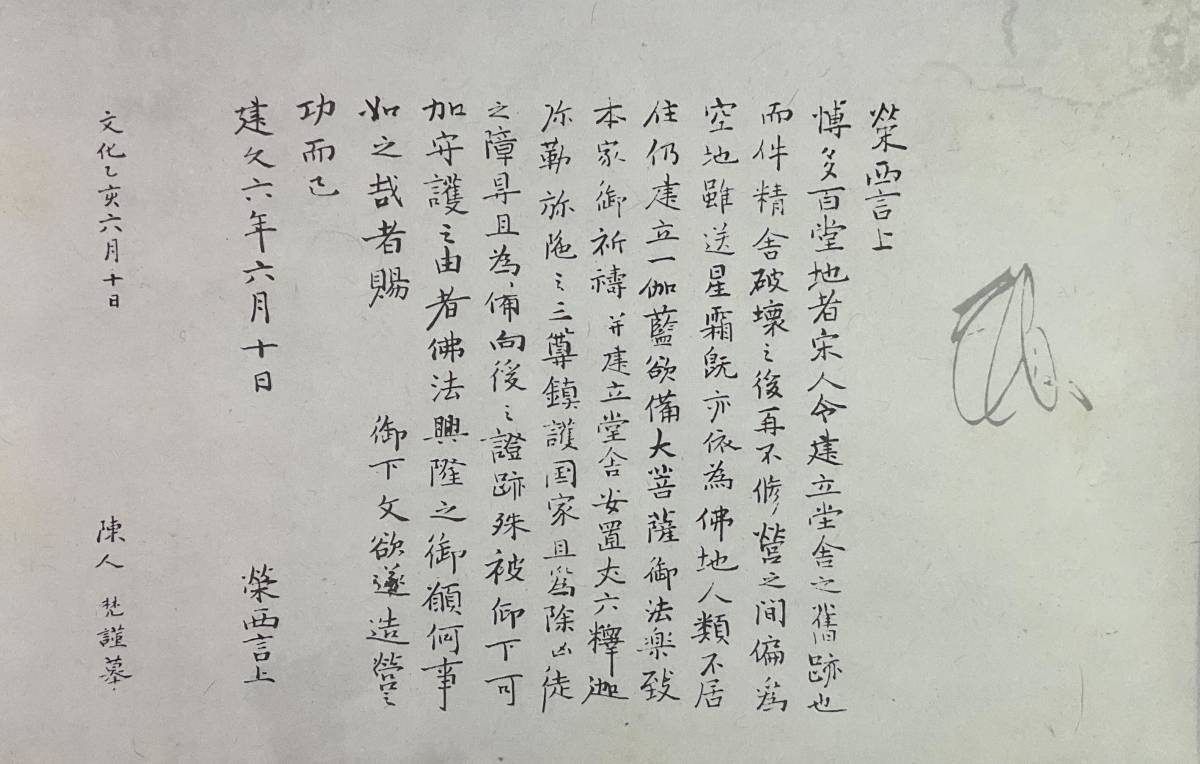 榮西言上
博多百堂地者宋人令建立堂舎之舊跡也
而件精舎破壊之後再不修營之間偏為
空地雖送星霜既亦依為佛地人類不居
住仍建立一伽藍欲備大菩薩御法楽致
本家御祈禱并建立堂舎安置丈六釋迦
弥勒弥陁之三尊鎮護国家且為除凶徒
之障导且為備向後之證跡殊被仰下可
加守護之由者佛法興隆之御願何事
如之哉者賜　御下文欲遂造營之
功而已
建久六年六月十日　榮西言上
文化乙亥六月十日　陳人 梵謹摹